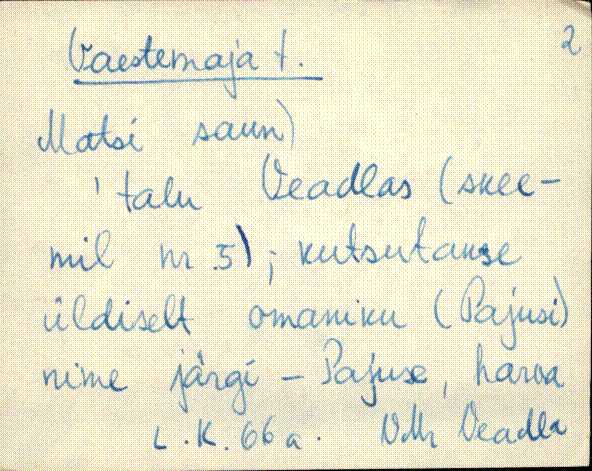 2
Vaestemaja t.
Matsi saun)
' talu Veadlas (skee-
mil nr. 5); kutsutakse
üldiselt omaniku (Pajusi)
nime järgi – Pajuse, harva
L.K. 66a. Vdk Veadla